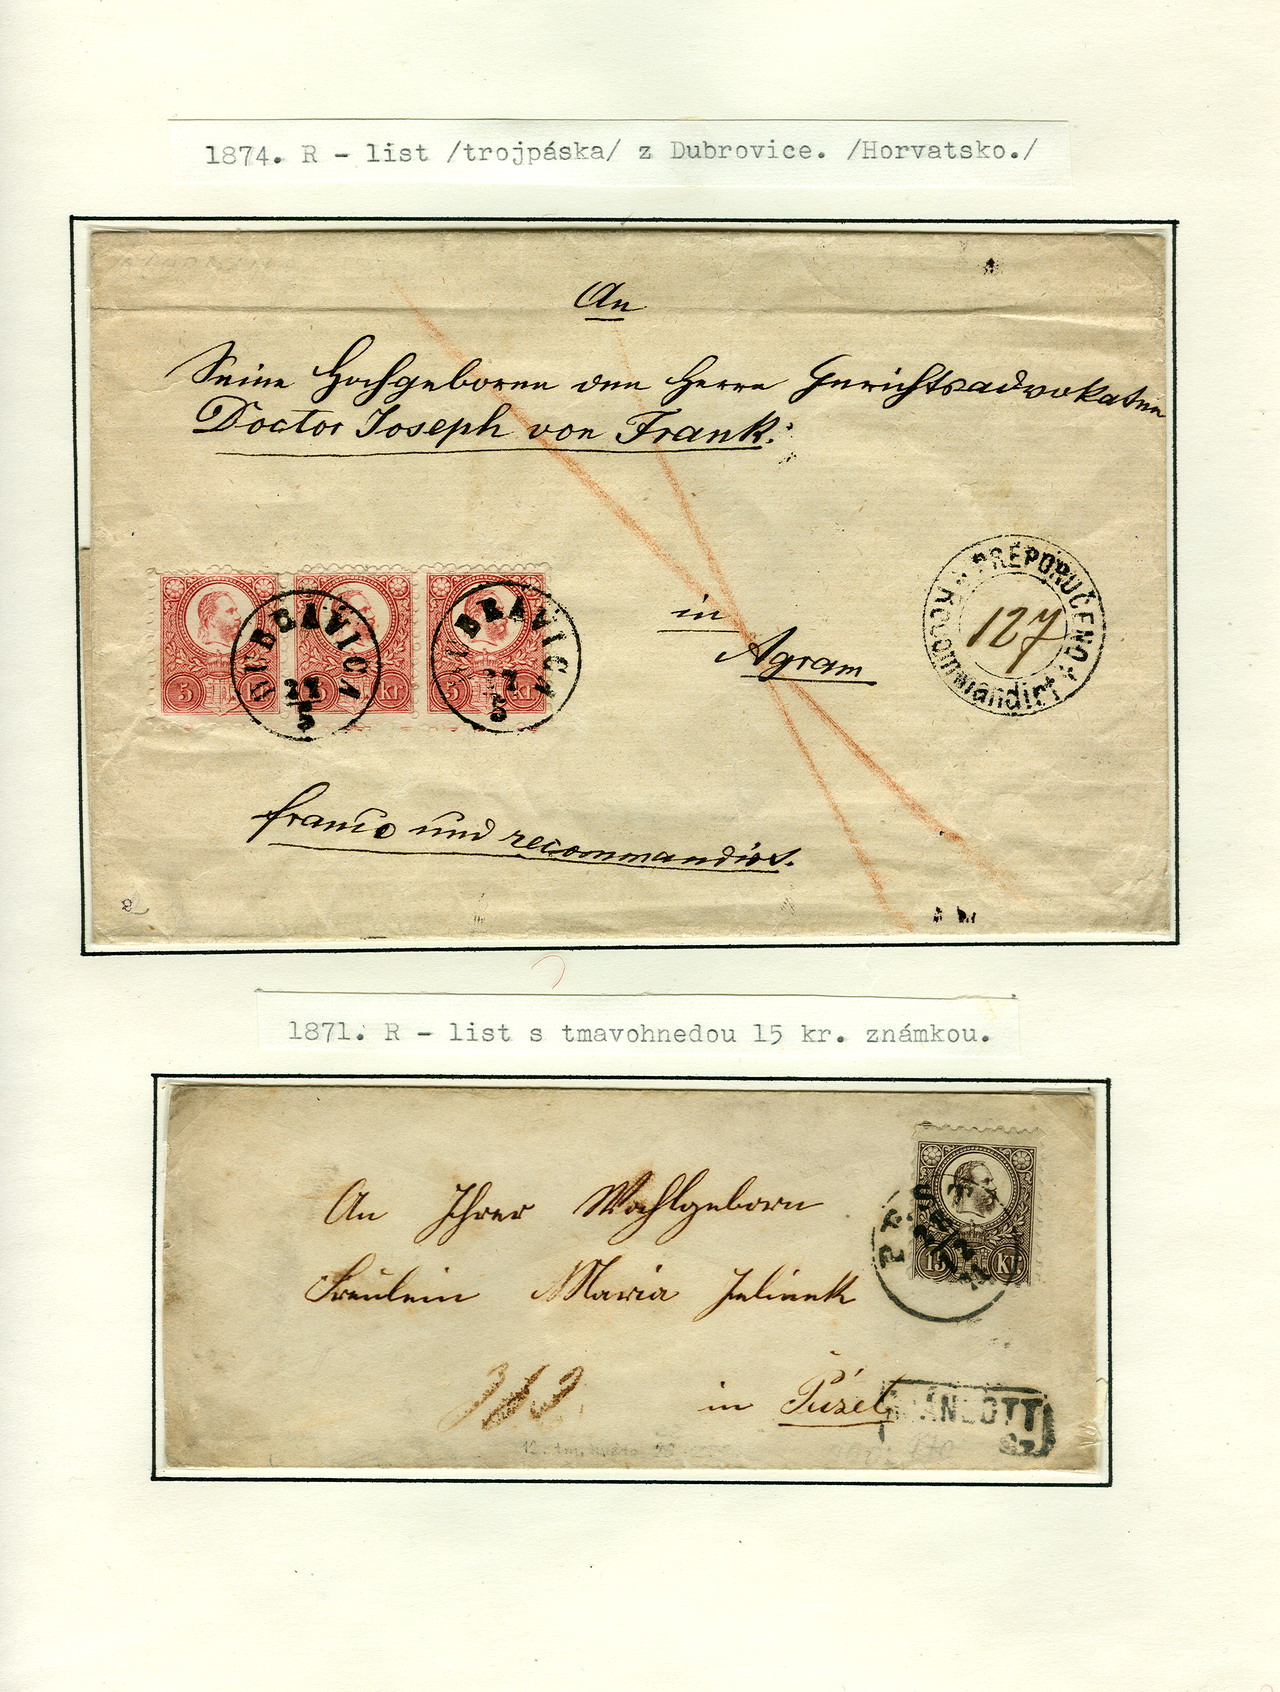 1874. R - list /trojpáska/ z Dubrovice. /Horvatsko./
An
Seine Hochgeboren den Herrn Gerichtsadvokaten
Doctor Joseph von Frank.
PREPORUČENO
Recommandirt
127
5 kr
5 kr
5 kr
DUBRAVICA
27
5
DUBRAVICA
27
5
in
Agram
franco und recommandirt.
1871. R - list s tmavohnedou 15 kr. známkou.
15 kr
An Ihrer Wohlgeborn
Fräulein Maria Jelinek
in